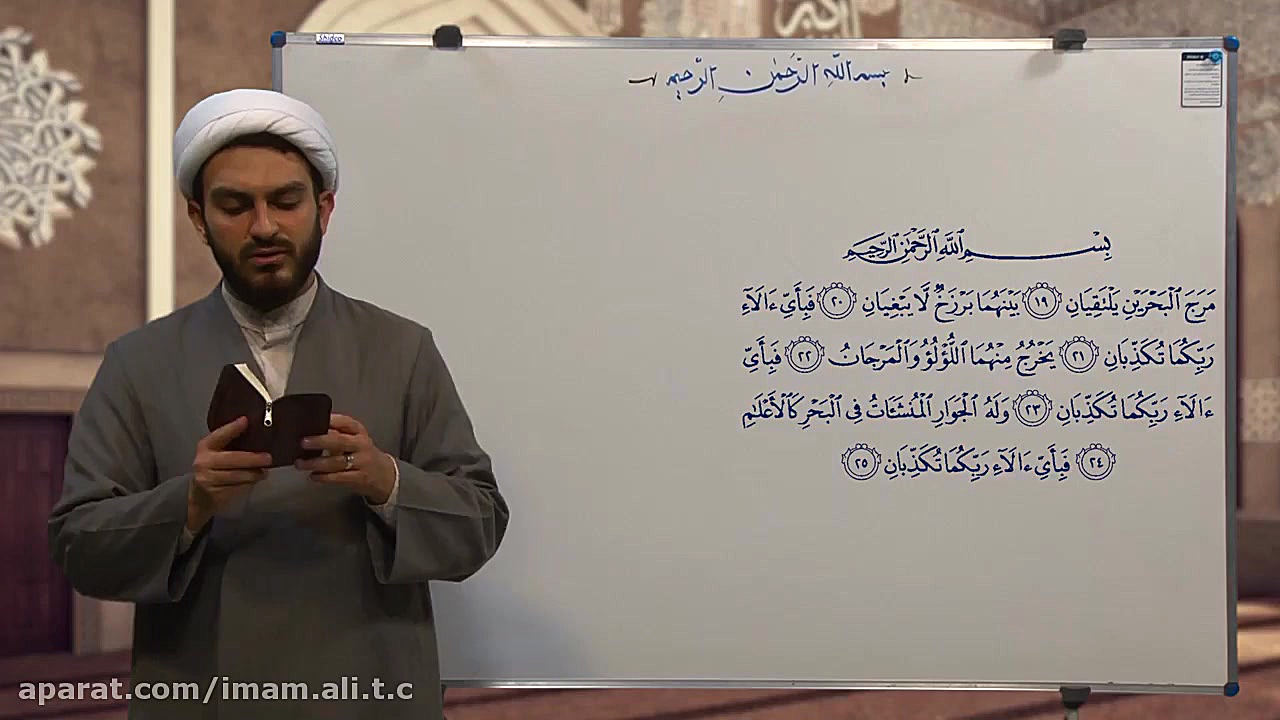 Shidco
بسم اللّٰه الرَّحمٰن الرَّحیم
بِسْمِ اللَّهِ الرَّحْمَٰنِ الرَّحِيمِ
مَرَجَ ٱلۡبَحۡرَيۡنِ يَلۡتَقِيَانِ ١٩ بَيۡنَهُمَا بَرۡزَخٞ لَّا يَبۡغِيَانِ ٢٠ فَبِأَيِّ ءَالَآءِ
رَبِّكُمَا تُكَذِّبَانِ ٢١ يَخۡرُجُ مِنۡهُمَا ٱللُّؤۡلُؤُ وَٱلۡمَرۡجَانُ ٢٢ فَبِأَيِّ
ءَالَآءِ رَبِّكُمَا تُكَذِّبَانِ ٢٣ وَلَهُ ٱلۡجَوَارِ ٱلۡمُنشَـَٔاتُ فِي ٱلۡبَحۡرِ كَٱلۡأَعۡلَٰمِ
٢٤ فَبِأَيِّ ءَالَآءِ رَبِّكُمَا تُكَذِّبَانِ ٢٥
aparat.com/imam.ali.t.c